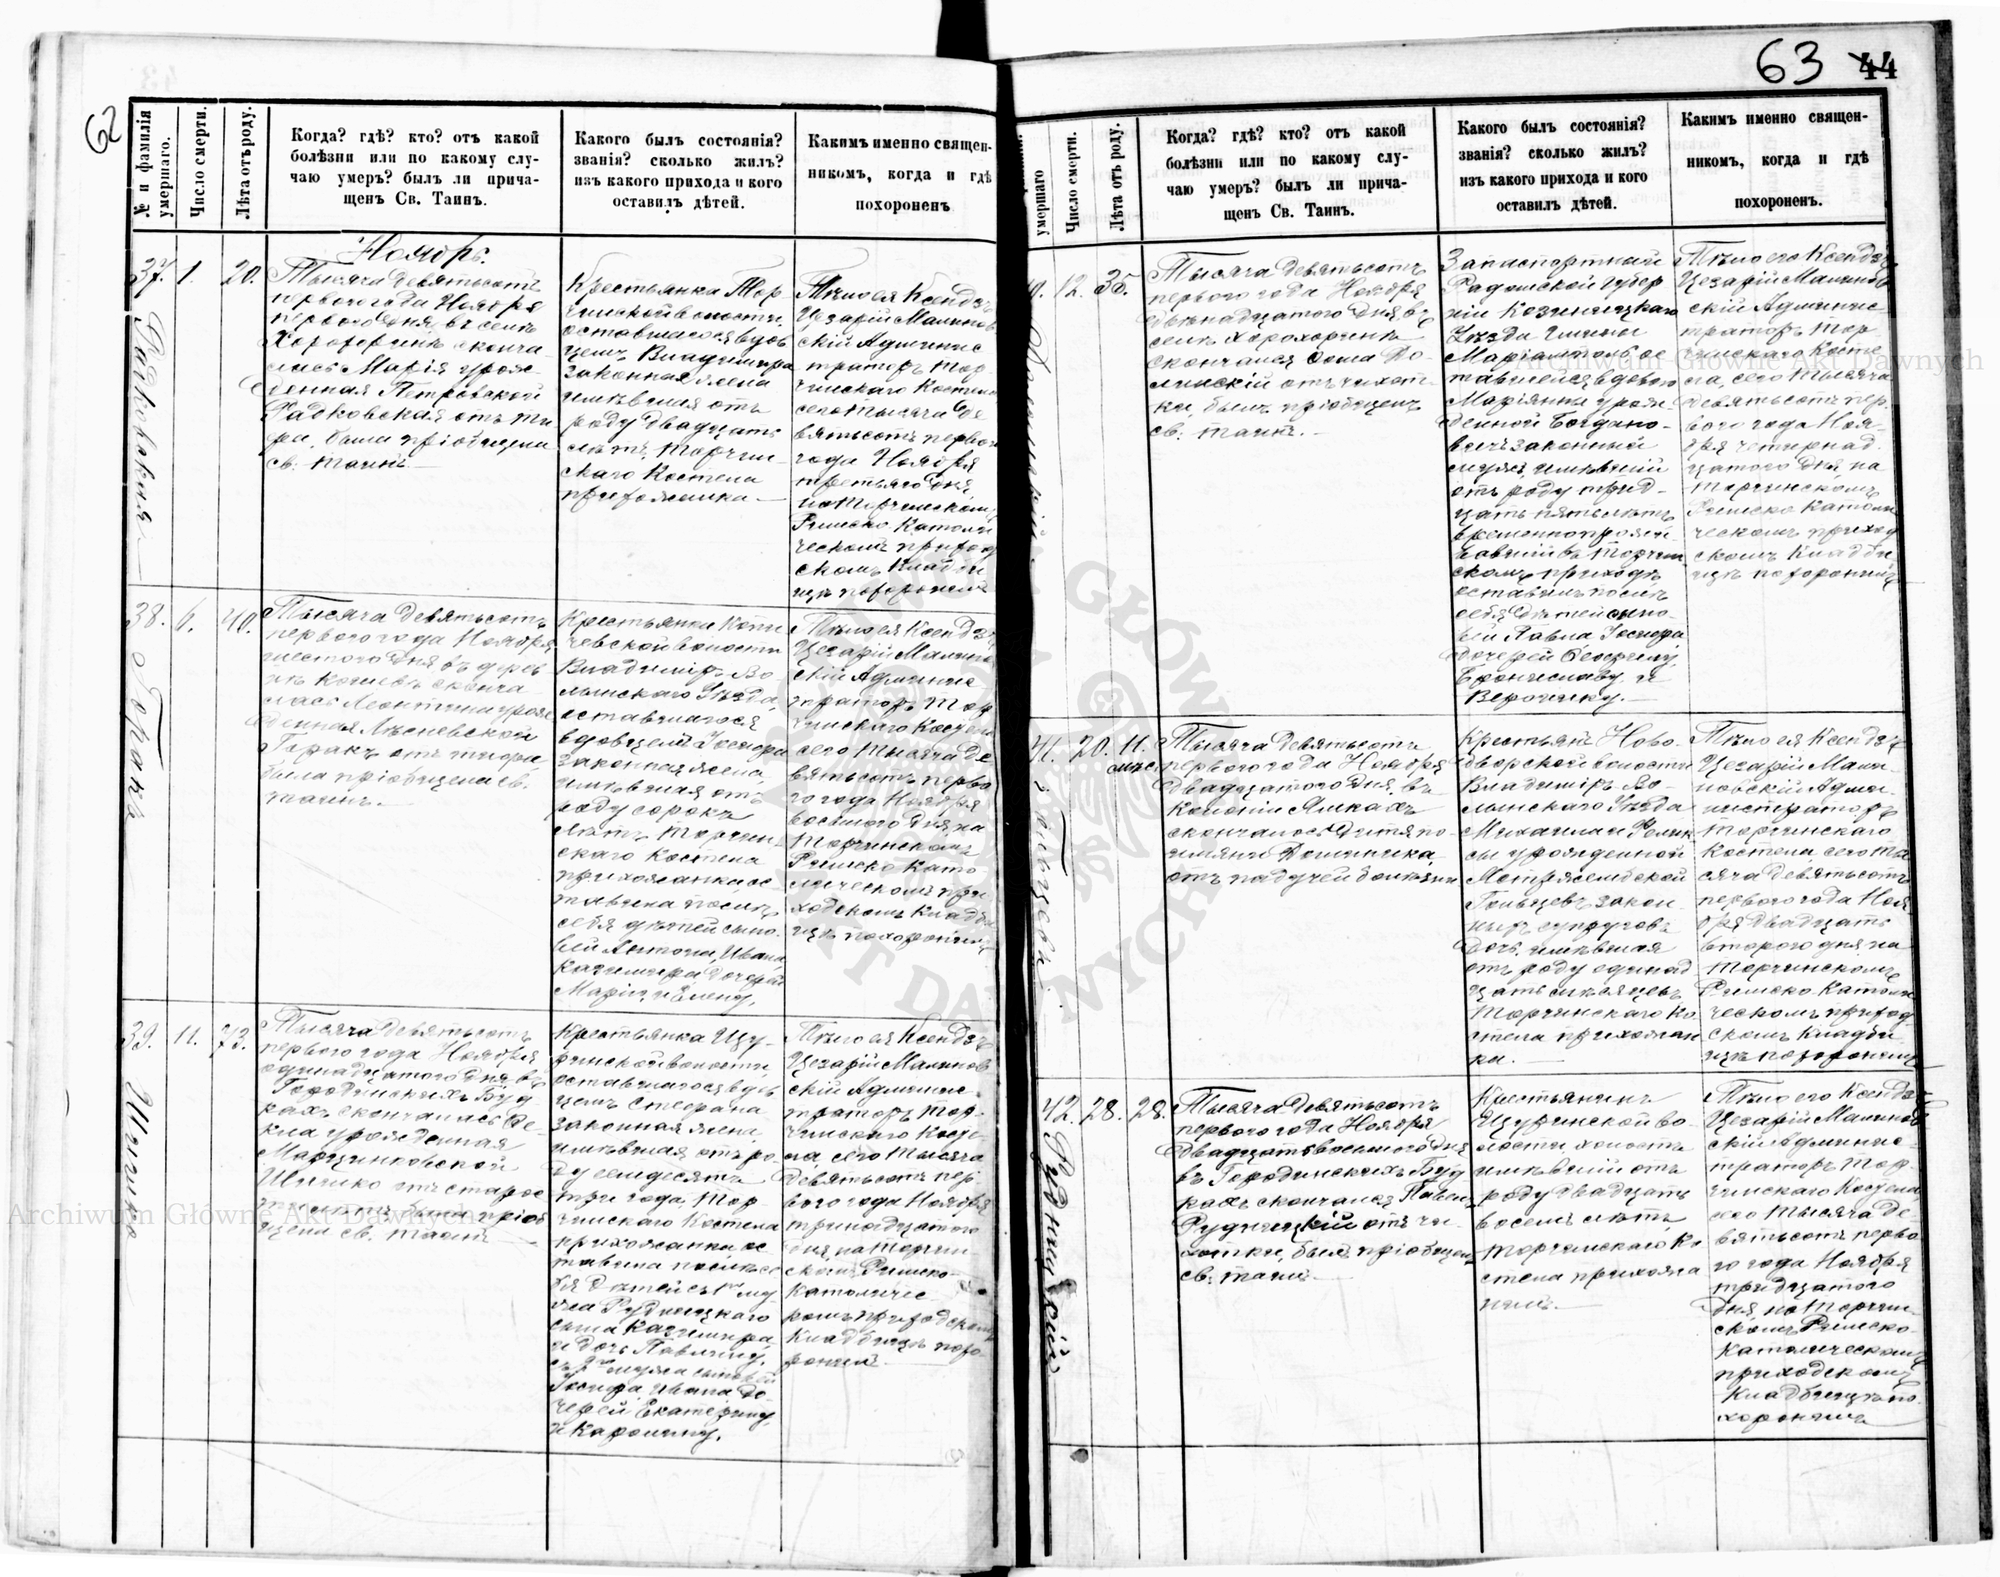 62
№ и фамилія умершаго.
Число смерти.
Лѣта отъ роду.
Когда? гдѣ? кто? отъ какой
болѣзни или по какому слу-
чаю умеръ? былъ ли прича-
щенъ Св. Таинъ.
Какого былъ состоянія?
званія? сколько жилъ?
изъ какого прихода и кого
оставилъ дѣтей.
Какимъ именно священ-
никомъ, когда и гдѣ
похороненъ
Ноябрь.
37. 1. 20.
Тысяча девятьсотъ
перваго года Ноября
перваго дня въ селѣ
сконча-
лась Марія урож-
денная Петровской
Радковская отъ
была пріобщена
св. таинъ.
Крестьянка Тор-
чинской волости,
оставшагося вдов-
цемъ Владимира
законная жена
имѣвшая отъ
роду двадцать
лѣтъ, Торчин-
скаго Костела
прихожанка.
Тѣло ея Ксендзъ
Цезарій Малинов-
скій Админис-
траторъ Тор-
чинскаго Костела
сего тысяча де-
вятьсотъ перваго
года Ноября
третьяго дня
на Торчинскомъ
Римско Католи-
ческомъ приход-
скомъ Кладби-
щѣ похоронилъ
38. 6. 40.
Горакъ
Тысяча девятьсотъ
перваго года Ноября
шестого дня въ дерев-
нѣ сконча-
лась Леонтина урож-
денная
Горакъ отъ
была пріобщена св.
таинъ.
Крестьянка
волости
Владимір-Во-
лынскаго Уѣзда,
оставшагося
вдовцемъ Іосифа
законная жена,
имѣвшая отъ
роду сорокъ
лѣтъ, Торчин-
скаго Костела
прихожанка ос-
тавила послѣ
себя дѣтей сыно-
вей Антона, Ивана,
Казимира дочерей
Марію и Елену.
Тѣло ея Ксендзъ
Цезарій Малинов-
скій Админис-
траторъ Тор-
чинскаго Костела
сего тысяча де-
вятьсотъ перва-
го года Ноября
восьмого дня на
Торчинскомъ
Римско Като-
лическомъ при-
ходскомъ Кладби-
щѣ похоронилъ
39. 11. 73.
Тысяча девятьсотъ
перваго года Ноября
одинадцатого дня въ
Городинскихъ Буд-
кахъ скончалась Те-
кла урожденная
Марцинковской
отъ старос-
ти лѣтъ была пріоб-
щена св. таинъ
Крестьянка Щу-
ринской волости,
оставшагося вдов-
цемъ Стефана
законная жена,
имѣвшая отъ ро-
ду семдесятъ
три года, Тор-
чинскаго Костела
прихожанка ос-
тавила послѣ се-
бя дѣтей съ 1го му-
жа Рудницкаго
сына Казимира
и дочь Павлину,
съ 2го мужа сыновей
Іосифа, Ивана до-
черей Екатерину
и Каролину.
Тѣло ея Ксендзъ
Цезарій Малинов-
скій Админис-
траторъ Тор-
чинскаго Косте-
ла, сего тысяча
девятьсотъ пер-
ваго года Ноября
тринадцатого
дня на Торчин-
скомъ Римско-
Католичес-
комъ приходскомъ
Кладбищѣ похо-
ронилъ.
63 44
умершаго
Число смерти.
Лѣта отъ роду.
Когда? гдѣ? кто? отъ какой
болѣзни или по какому слу-
чаю умеръ? былъ ли прича-
щенъ Св. Таинъ.
Какого былъ состоянія?
званія? сколько жилъ?
изъ какого прихода и кого
оставилъ дѣтей.
Какимъ именно священ-
никомъ, когда и гдѣ
похороненъ.
12. 35.
Тысяча девятьсотъ
перваго года Ноября
двѣнадцатого дня въ
селѣ
скончался Ѳома До-
линскій отъ чахот-
ки, былъ пріобщенъ
св. таинъ.
Запаспортный
Радомской Губер-
ніи Козеницкаго
Уѣзда Гмины
Маріамполь ос-
тавшейся вдовою
Маріянны урож-
денной Богдано-
вичъ законный
мужъ имѣвшій
отъ роду трид-
цать пять лѣтъ,
временно прожи-
вавшій въ Торчин-
скомъ приходѣ
оставилъ послѣ
себя дѣтей сыно-
вей Павла Іосифа
дочерей
Брониславу и
Веронику.
Тѣло его Ксендзъ
Цезарій Малинов-
скій Админис-
траторъ Тор-
чинскаго Косте-
ла, сего тысяча
девятьсотъ пер-
ваго года Ноя-
бря четырнад-
цатого дня на
Торчинскомъ
Римско Католи-
ческомъ приход-
скомъ Кладби-
щѣ похоронилъ
41. 20. 11.
мѣс.
Тысяча девятьсотъ
перваго года Ноября
двадцатого дня въ
Колоніи
скончалось дитя по-
имяни Доминика,
отъ падучей болѣзни
Крестьянъ Ново-
дворской волости
Владимір-Во-
лынскаго Уѣзда
Михаила и Фелик-
сы урожденной
закон-
ныхъ супруговъ
дочь, имѣвшая
отъ роду одинад-
цать мѣсяцевъ
Торчинскаго Ко-
стела прихожан-
ка.
Тѣло ея Ксендзъ
Цезарій Мали-
новскій Адми-
нистраторъ
Торчинскаго
Костела, сего ты-
сяча девятьсотъ
перваго года Ноя-
бря двадцать
второго дня на
Торчинскомъ
Римско Католи-
ческомъ приход-
скомъ Кладби-
щѣ похоронилъ
42. 28. 28.
Рудницкій
Тысяча девятьсотъ
перваго года Ноября
двадцать восьмого дня
въ Городинскихъ Буд-
кахъ скончался Павелъ
Рудницкій отъ ча-
хотки, былъ пріобщенъ
св. таинъ.
Крестьянинъ
Щуринской во-
лости, холостъ
имѣвшій отъ
роду двадцать
восемь лѣтъ,
Торчинскаго Ко-
стела прихожа-
нинъ.
Тѣло его Ксендзъ
Цезарій Малинов-
скій Админис-
траторъ Тор-
чинскаго Костела
сего тысяча де-
вятьсотъ перва-
го года Ноября
тридцатого
дня на Торчин-
скомъ Римско-
Католическомъ
приходскомъ
Кладбищѣ по-
хоронилъ
Archiwum Główne Akt Dawnych
Archiwum Główne Akt Dawnych